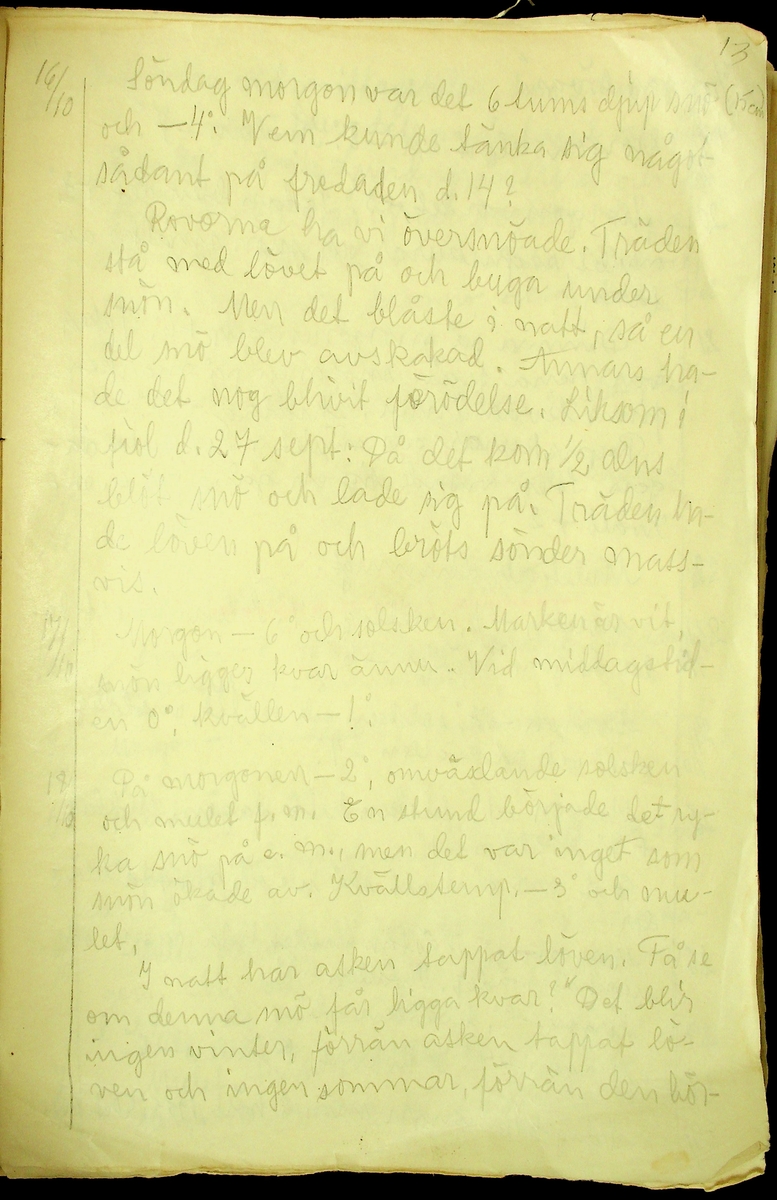 13
16/10 Söndag morgon var det 6 tums djup snö (15 cm)
och -4°. Vem kunde tänka sig något
sådant på fredagen d. 14?
Rovorna ha vi översnöade. Träden
stå med lövet på och buga under
snön. Men det blåste i natt, så en
del snö blev avskakad. Annars ha-
de det nog blivit förödelse. Liksom i
fjol d. 27 sept: Då det kom 1/2 alns
blöt snö och lade sig på. Träden ha-
de löven på och bröts sönder mass-
vis.
17/10 Morgon -6° och solsken. Marken är vit,
snön ligger kvar ännu. Vid middagstid-
en 0°, kvällen -1°.
18/10 På morgonen -2°, omväxlande solsken
och mulet f.m. En stund började det ry-
ka snö på e.m., men det var inget som
snön ökade av. Kvällstemp. -3° och mu-
let.
I natt har asken tappat löven. Få se
om denna snö får ligga kvar? "Det blir
ingen vinter, förrän asken tappat lö-
ven och ingen sommar, förrän den bör-